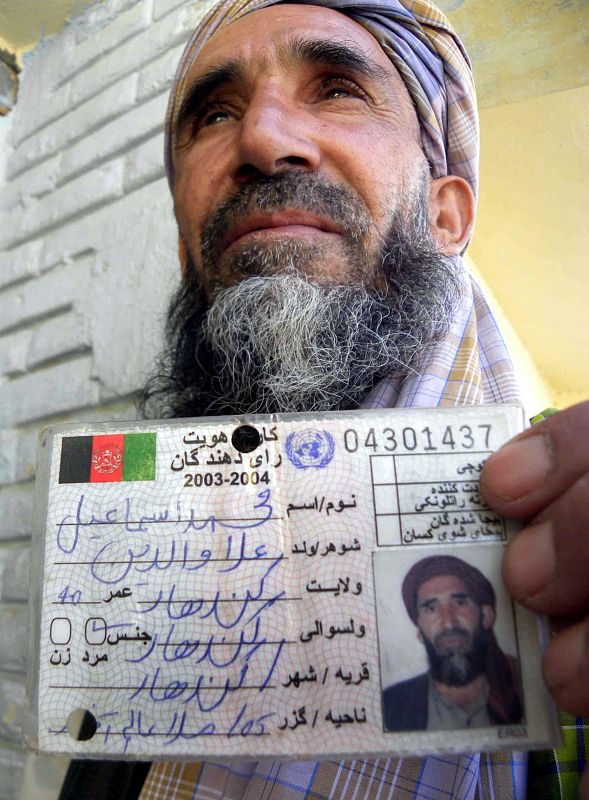 کارت هویت
رای دهندگان
2003-2004
04301437
نوم/اسم محمد اسماعیل
شوهر/ولد علاوالدین
ولایت کندهار عمر ۴۰
ولسوالی کندهار جنس مرد زن
قریه / شهر کندهار
ناحیه / گزر 05/
کننده
شده گان
شوی کسان
ER03